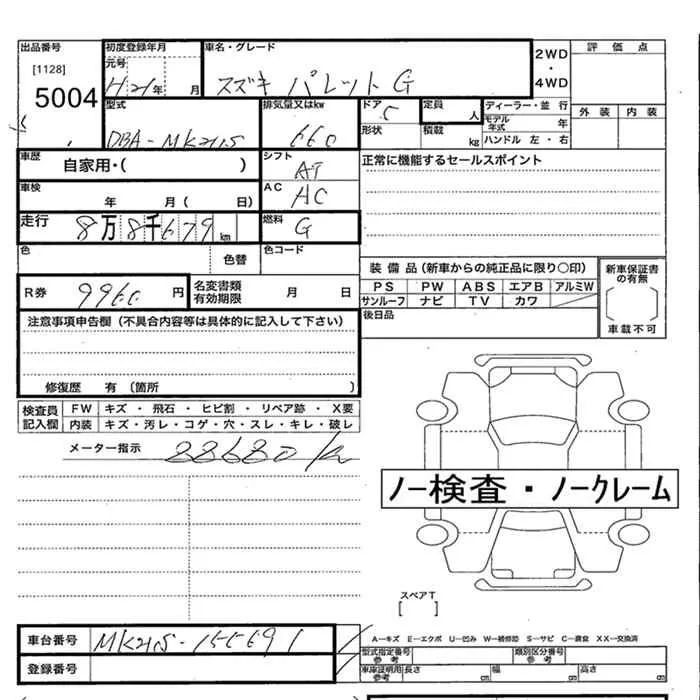 出品番号 初度登録年月 車名・グレード 2WD・4WD 評価点
[1128] 元号
5004 H21年 月 スズキ パレットG
型式 排気量又はkw ドア 5 定員 人 ディーラー・並行 外装 内装
DBA-MK21S 660 形状 積載 kg モデル年式 年
ハンドル 左・右
車歴 自家用・( ) シフト AT 正常に機能するセールスポイント
車検 年 月( 日) AC AC
走行 8万8千679km 燃料 G
色 色替 色コード
R券 9960円 名変書類有効期限 月 日
装備品(新車からの純正品に限り○印) 新車保証書の有無
PS PW ABS エアB アルミW
サンルーフ ナビ TV カワ
[ ]
車載不可
後日品
注意事項申告欄(不具合内容等は具体的に記入して下さい)
修復歴 有(箇所 )
検査員記入欄 FW キズ・飛石・ヒビ割・リペア跡・X要
内装 キズ・汚レ・コゲ・穴・スレ・キレ・破レ
メーター指示 88680km
ノー検査・ノークレーム
スペアT
[ ]
車台番号 MK21S-155691
登録番号
A―キズ E―エクボ U―凹み W―補修跡 S―サビ C―腐食 XX―交換済
型式指定番号参考 類別区分番号参考
車庫証明用参考 長さ cm 幅 cm 高さ cm